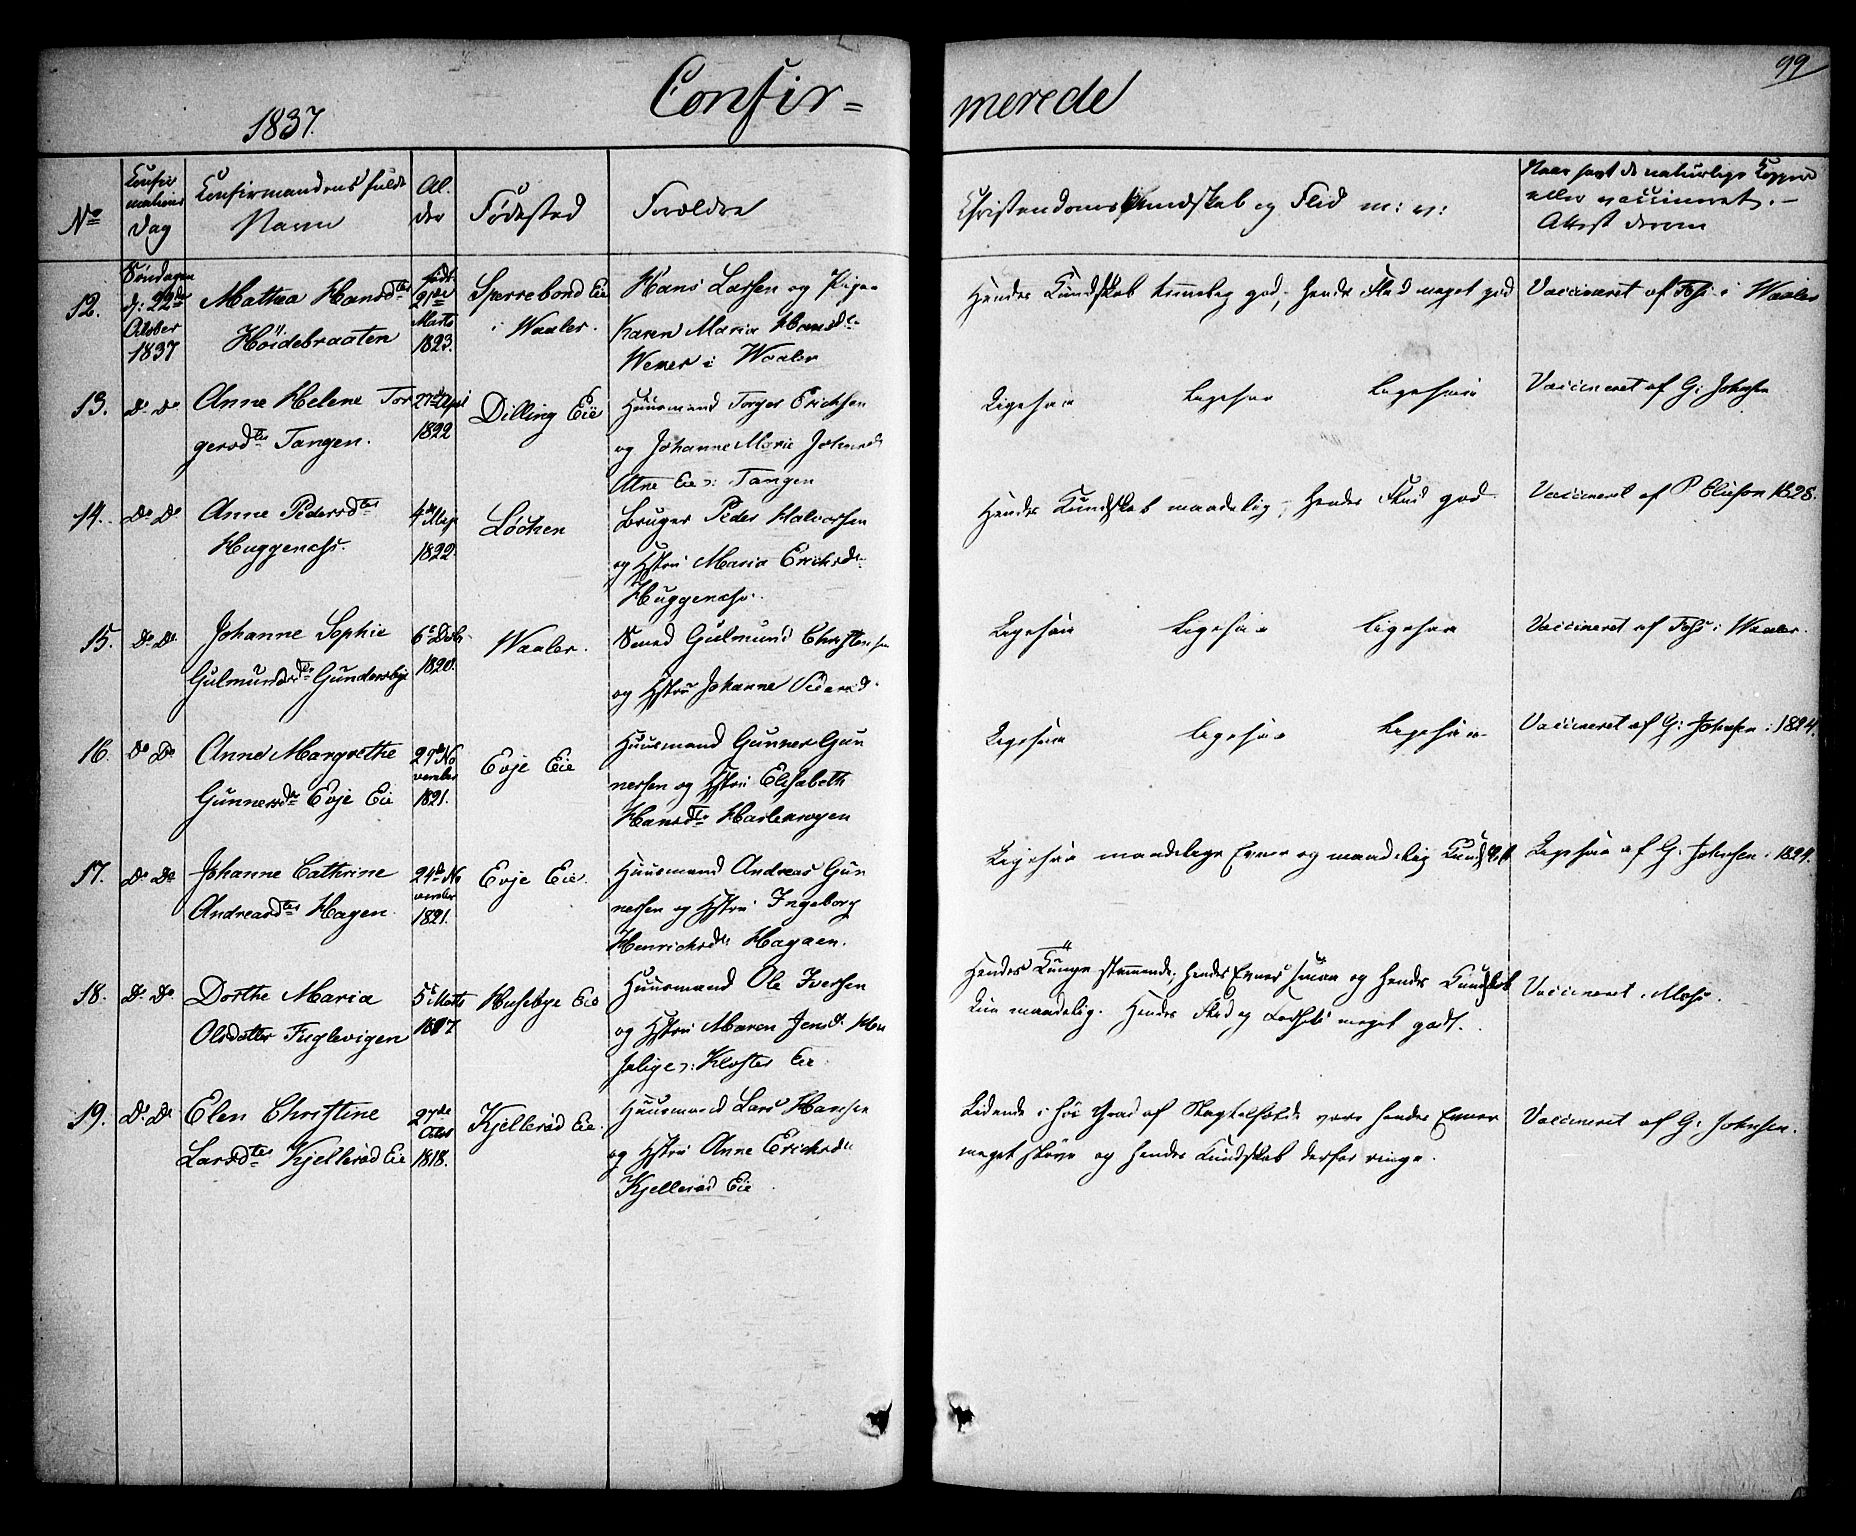 99
Confir=
merede
1837.
No
Confir
mations
Dag
Confirmandens fulde
Navn
Al.
der
Fødested
Forældre
Christendoms Kundskab og Flid m: v:
Naar havt de naturlige Kopper
eller vaccineret. –
Attest derom
12.
Søndagen
d: 22de
October
1837
Mathea Hansdtr
Höidebraaten
født
21de
Marts
1823.
Sperrebond Eie
i Waaler.
Hans Larsen og Pige
Karen Maria Hansdr
Wemer i Waaler
Hendes Kundskab temmelig god, hendes Flid meget god
Vaccineret af Foss i Waaler
13.
Do Do
Anne Helene Tor
gersdtr Tangen.
27de April
1822
Dilling Eie
Huusmand Torger Erichsen
og Johanne Marie Johnsdr
Atne Eie i Tangen
Ligesaa Ligesaa Ligesaa
Vaccineret af G: Johnsen
14.
Do Do
Anne Pedersdtr
Huggenæs.
4de May
1822.
Löchen
Bruger Peder Halvorsen
og Hstru Maria Erichsdr
Huggenæs.
Hendes Kundskab maadelig, Hendes Flid god
Vaccineret af P Elieson 1828.
15.
Do Do
Johanne Sophie
Gulmundsdtr Gundersbye
6te Decbr
1820.
Waaler.
Smed Gulmund Christensen
og Hstru Johanne
Ligesaa Ligesaa Ligesaa
Vaccineret af Foss i Waaler.
16.
Do Do
Anne Margrethe
Gunnersdtr Evje Eie
29de No
vember
1821.
Evje Eie
Huusmand Gunner Gun
nersen og Hstru Elisabeth
Hansdtr
Ligesaa Ligesaa Ligesaa
Vaccineret af G: Johnsen i 1824.
17.
Do Do
Johanne Cathrine
Andreasdtr Hagen
24de No
vember
1821.
Evje Eie.
Huusmand Andreas Gun
nersen og Hstru Ingeborg
Henrichsdr Hagaen.
Ligesaa maadelige Evner og maadelig Kundskab
Ligesaa af G: Johnsen i 1824.
18.
Do Do
Dorthe Maria
Olsdatter Fuglevigen
5te Marts
1817
Husebye Eie
Huusmand Ole Iversen
og Hstru Maren Jensdr
Kloster Eie
Hendes Tunge stammende, hendes Evner smaa og hendes Kundskab
kun maadelig. Hendes Flid og Forhold meget godt.
Vaccineret i Moss.
19.
Do Do
Elen Christine
Larsdtr Kjellerød Eie
27de
Octor
1818.
Kjellerød Eie.
Huusmand Lars Hansen
og Hstru Anne Erichsdr
Kjellerød Eie
Lidende i høi Grad af hendes Evner
meget sløve og hendes Kundskab derfor ringe.
Vaccineret af G: Johnsen.